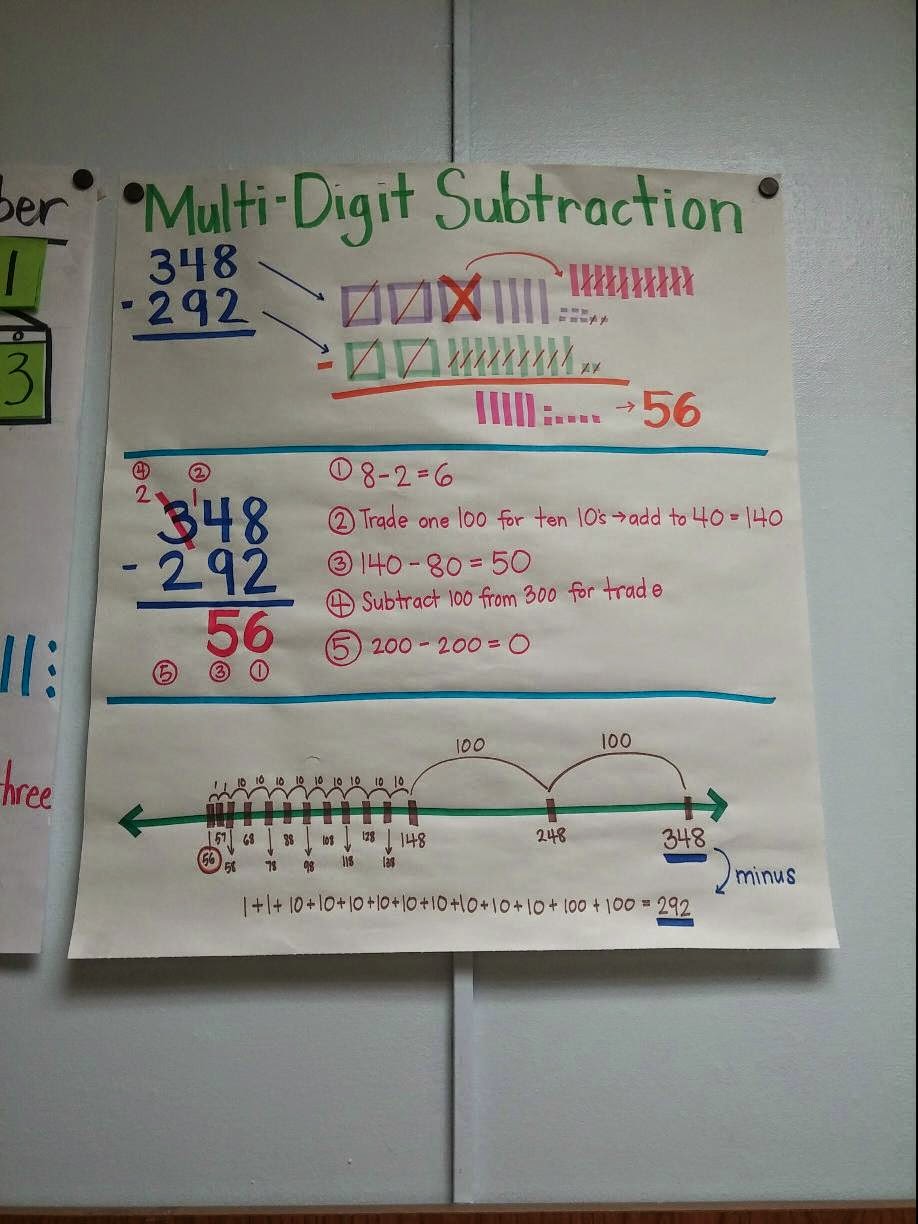 ber
1
3
three
Multi-Digit Subtraction
348
- 292
- 
→ 56
④ ②
2 1
348
- 292
56
⑤ ③ ①
① 8-2=6
② Trade one 100 for ten 10's → add to 40 = 140
③ 140 - 80 = 50
④ Subtract 100 from 300 for trade
⑤ 200 - 200 = 0
100 100
1 1 10 10 10 10 10 10 10 10 10
57 68 88 108 128 148 248 348
56 58 78 98 118 138
minus
1+1+10+10+10+10+10+10+10+10+10+100+100 = 292